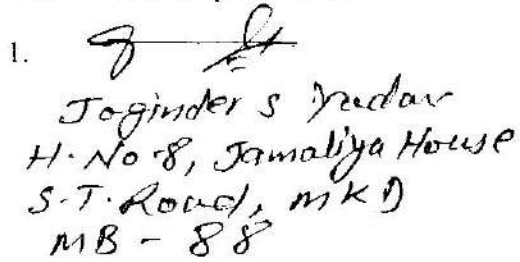 1.
Joginder S Yadav
H. No-8, Jamaliya House
S.T. Road, MKD
MB - 88